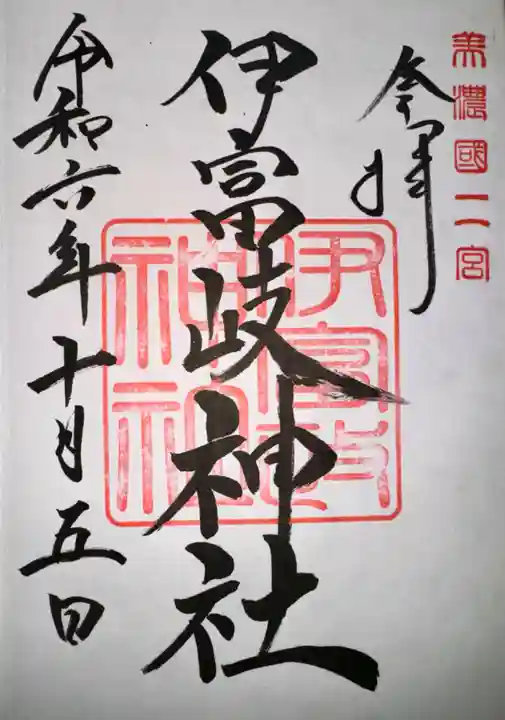 美濃國二宮
奉拝
伊富岐神社
伊富岐神社
令和六年十月五日